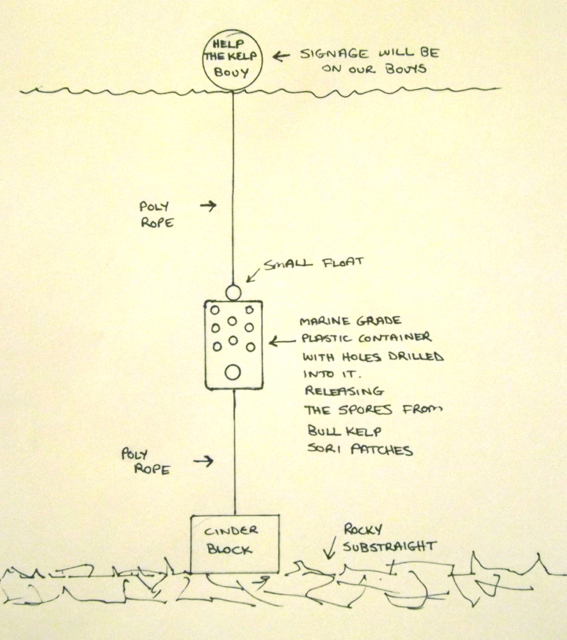 HELP
THE KELP
BOUY
SIGNAGE WILL BE
ON OUR BOUYS
POLY
ROPE
SMALL FLOAT
MARINE GRADE
PLASTIC CONTAINER
WITH HOLES DRILLED
INTO IT.
RELEASING
THE SPORES FROM
BULL KELP
SORI PATCHES
POLY
ROPE
CINDER
BLOCK
ROCKY
SUBSTRAIGHT